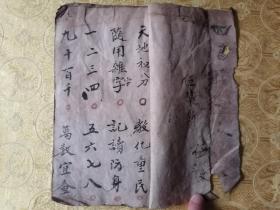 天地初分 教化重民
隨用雜字 記讀防身
一二三四 五六七八
九十百千 萬數宜